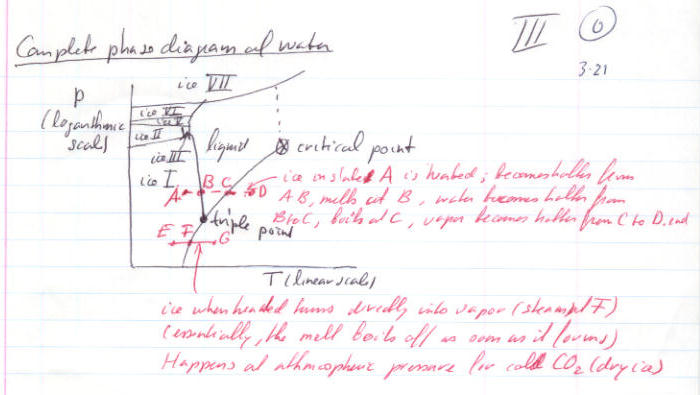 III 0
3-21
Complete phase diagram of water
p
(logarithmic
scale)
ice VII
ice VI
ice V
ice II
ice III
ice I
liquid
critical point
A B C D
ice in state A is heated; becomes hotter from
AB, melts at B, water becomes hotter from
B to C, boils at C, vapor becomes hotter from C to D. end
triple point
E F G
T (linear scale)
ice when heated turns directly into vapor (steam at F)
(essentially, the melt boils off as soon as it forms)
Happens at athmospheric pressure for cold CO2 (dry ice)